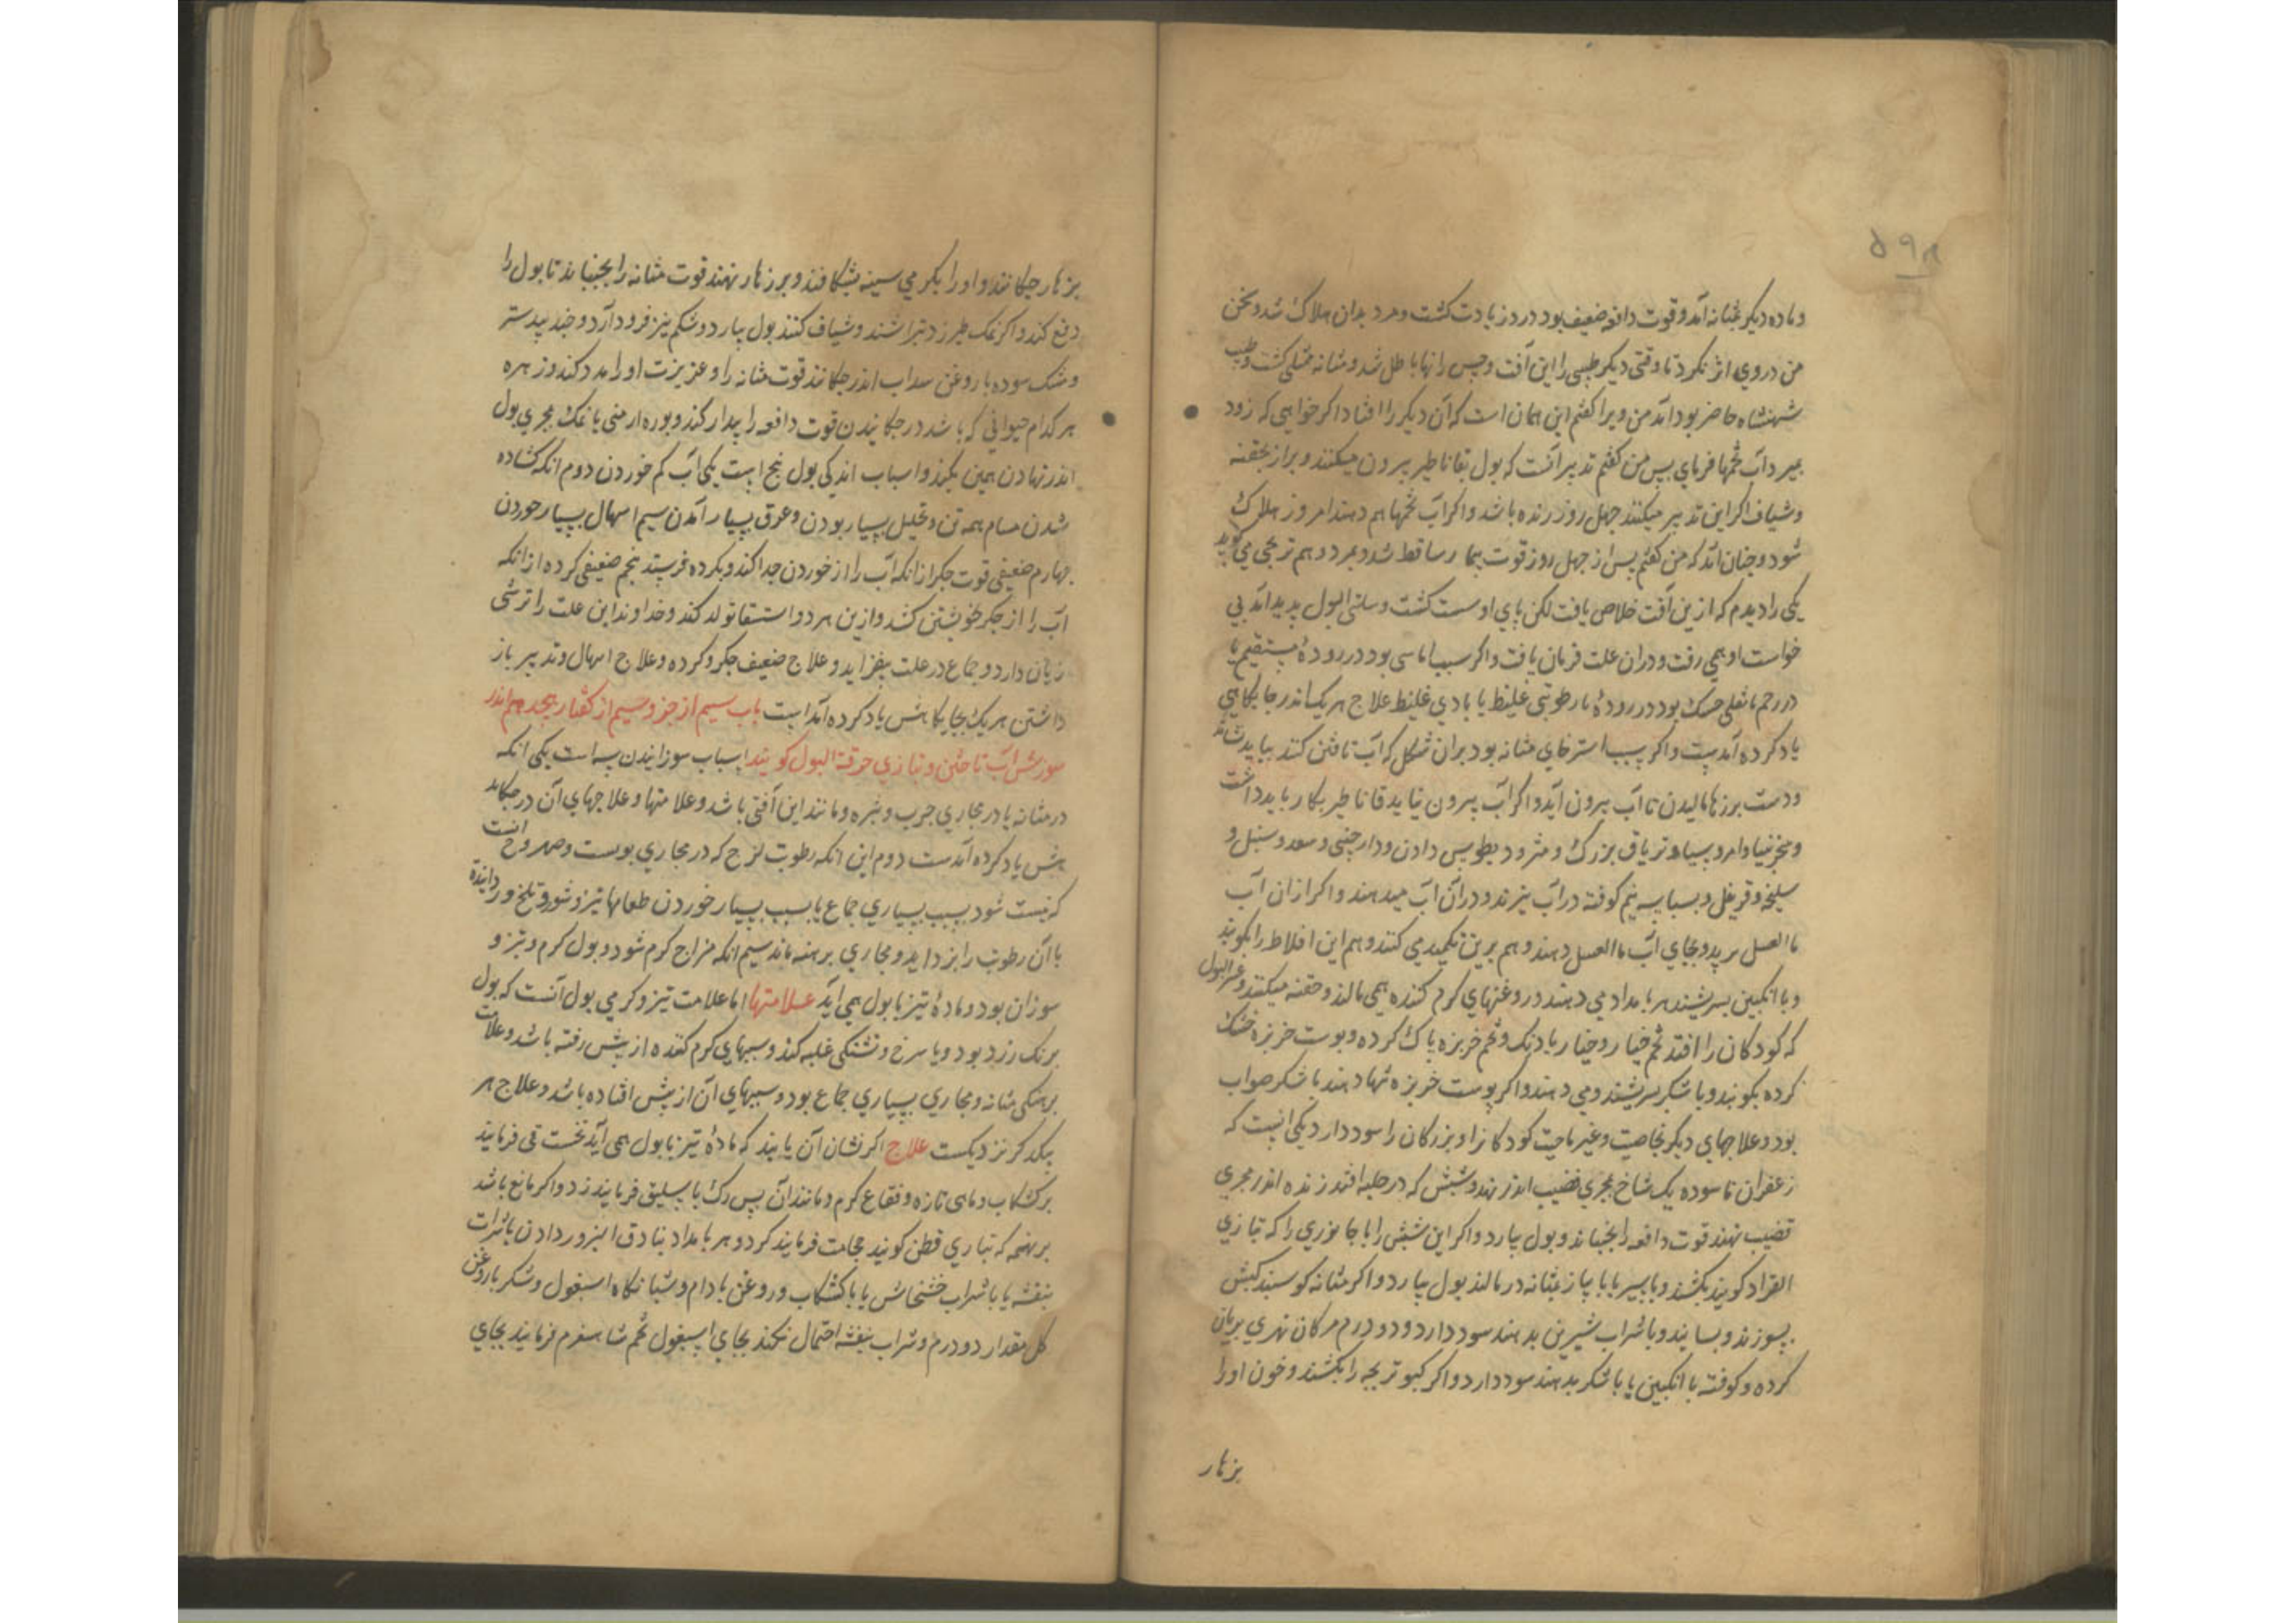 ۵۹۸
وماده دیکر بمثانه آمد وقوت دافعه ضعیف بود درد زیادت کشت ومرد بدان هلاک شد وسخن
من در وی اثر نکرد تا وقتی دیکر طبیبی را این آفت وحبس رانها باطل شد ومثانه ممتلی کشت وطبیب
شهنشاه حاضر بود آمد من ویرا کفتم این همان است که آن دیکر را افتاد اکر خواهی که زود
بمیرد آب تخمها فرمای پس من کفتم تدبیر آنست که بول بقاناطیر بیرون میکنند وبراز بحقنه
وشیاف اکر این تدبیر میکنند چهل روز زنده باشد واکر آب تخمها هم دهند امروز هلاک
شود وچنان آمد که من کفتم پس از چهل روز قوت بیمار ساقط شد وبمرد وهم ترنجی می کوید
یکی را دیدم که ازین آفت خلاص یافت لکن پای او سست کشت وسلس البول پدید آمد بی
خواست او همی رفت ودران علت فرمان یافت واکر سبب اماسی بود در رودهٔ مستقیم یا
در رحم یا ثفلی خشک بود در رودهٔ یا رطوبتی غلیظ یا بادی غلیظ علاج هر یک اندر جایکاهی
یاد کرده آمدست واکر سبب استرخای مثانه بود بران شکل که آب تاختن کند بباید نشاند
ودست بر زهار مالیدن تا آب بیرون آید واکر آب بیرون نیاید قاناطیر بکار باید داشت
وسجزنیا وامروسیا وتریاق بزرک ومثرودیطوس دادن ودارچینی وسعد وسنبل و
سلیخه وقرنفل وبسباسه نیم کوفته در آب بپزند ودر آن آب میدهند واکر ازان آب
ماالعسل پزند وبجای آب ماالعسل دهند وهم برین تکمید می کنند وهم این اخلاط را بکوبند
وبا انکبین بسرشند هر بامداد می دهند وروغنهای کرم کننده همی مالند وحقنه میکنند وعسر البول
که کودکان را افتد تخم خیار وخیار بادرنک وتخم خربزه پاک کرده وپوست خربزه خشک
کرده بکوبند وبا شکر بسرشند ومی دهند واکر پوست خربزه تنها دهند با شکر صواب
بود وعلاجهای دیکر بخاصیت وغیر خاصیت کودکانرا وبزرکان را سود دارد یکی آنست که
زعفران ناسوده یک شاخ بمجری قضیب اندر نهند وشپش که در جامه افتد زنده اندر مجری
قضیب نهند قوت دافعه را بجنباند وبول بیارد واکر این شپش را با جانوری را که بتازی
القراد کویند بکشند وبا سیر یا با پیاز بمثانه درمالند بول بیارد واکر مثانه کوسبند کبش
بسوزند وبسایند وبا شراب شیرین بدهند سود دارد ودو درم سرکان نهری بریان
کرده وکوفته با انکبین یا با شکر بدهند سود دارد واکر کبوتر بچه را بکشند وخون او را
بزهار
بزهار چکانند واو را بکرمی سینه بشکافند وبر زهار نهند قوت مثانه را بجنباند تا بول را
دفع کند واکر نمک طبرزد بتراشند وشیاف کنند بول بیارد وشکم نیز فرود آرد وجند بیدستر
ومشک سوده با روغن سداب اندر چکانند قوت مثانه را وغریزت او را مدد کند وزهره
هر کدام حیوانی که باشد در چکانیدن قوت دافعه را بیدار کند وبوره ارمنی یا نمک بمجری بول
اندر نهادن همین بکند واسباب اندکی بول پنج است یکی آب کم خوردن دوم آنکه کشاده
شدن مسام همه تن وتحلیل بسیار بودن وعرق بسیار آمدن سیم اسهال بسیار خوردن
چهارم ضعیفی قوت جکر از آنکه آب را از خوردن جدا کند وبکرده فرستد پنجم ضعیفی کرده از آنکه
آب را از جکر خویشتن کشد وازین هر دو استسقا تولد کند وخداوند این علت را ترشی
زیان دارد وجماع در علت بیفزاید وعلاج ضعیف جکر وکرده وعلاج اسهال وتدبیر باز
داشتن هر یک بجایکاهش یاد کرده آمدست باب سیم از جزو سیم از کفتار هجدهم اندر
سوزش آب تاختن وبتازی حرقة البول کویند اسباب سوزانیدن سه است یکی آنکه
در مثانه یا در مجاری جرب وبثره ومانند این آفتی باشد وعلامتها وعلاجهای آن در جایکاه
هش یاد کرده آمدست دوم این آنکه رطوبت لزج که در مجاری پوست وصهروج آنست
که نیست شود بسبب بسیاری جماع یا بسبب بسیار خوردن طعامها تیز وشور وتلخ وزداینده
تا آن رطوبت را بزداید ومجاری برهنه ماند سیم آنکه مزاج کرم شود وبول کرم وتیز و
سوزان بود ومادهٔ تیز با بول همی آید علامتها اما علامت تیز وکرمی بول آنست که بول
برنک زرد بود ویا سرخ وتشنکی غلبه کند وسببهای کرم کننده از پیش رفته باشد وعلامت
برهنکی مثانه ومجاری بسیاری جماع بود وسببهای آن از پیش افتاده باشد وعلاج هر
یکدکر نزدیکست علاج اکر نشان آن یابند که مادهٔ تیز با بول همی آید نخست قی فرمایند
بر کشکاب وماهی تازه وفقاع کرم ومانند آن پس رک باسلیق فرمایند زد واکر مانع باشد
برهنجه که بتازی قطن کویند حجامت فرمایند کرد وهر بامداد بنادق البزور دادن با شراب
بنفشه یا با شراب خشخاش یا با کشکاب وروغن بادام وشبانکاه اسبغول وشکر با روغن
کل مقدار دو درم وشراب بنفشه احتمال نکند بجای اسبغول تخم شاهسفرم فرمایند بجای